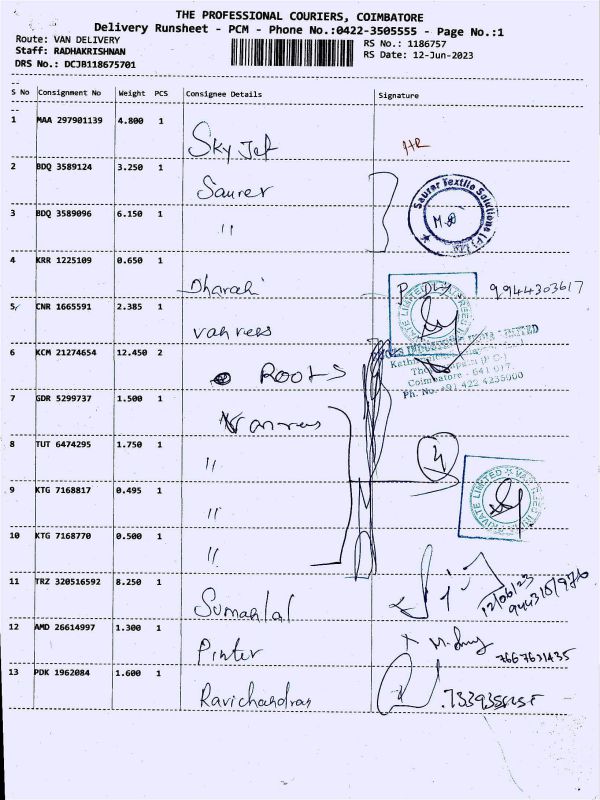 THE PROFESSIONAL COURIERS, COIMBATORE
Delivery Runsheet - PCM - Phone No.:0422-3505555 - Page No.:1
Route: VAN DELIVERY
Staff: RADHAKRISHNAN
DRS No.: DCJB118675701
RS No.: 1186757
RS Date: 12-Jun-2023
S No Consignment No Weight PCS Consignee Details Signature
1 MAA 297901139 4.800 1
Sky Jet HR
2 BDQ 3589124 3.250 1
Saurer
Saurer Textile Solutions (P) Ltd
3 BDQ 3589096 6.150 1
"
4 KRR 1225109 0.650 1
Dharani 9944303617
5 CNR 1665591 2.385 1
van rees
PRIVATE LIMITED
6 KCM 21274654 12.450 2
Roots
INDIA LIMITED
Coimbatore - 641 017.
Ph. No. +91 422 4235900
7 GDR 5299737 1.500 1
Vanrees
8 TUT 6474295 1.750 1
"
4
9 KTG 7168817 0.495 1
"
PRIVATE LIMITED
10 KTG 7168770 0.500 1
"
11 TRZ 320516592 8.250 1
Sumanlal
12/06/23
12 AMD 26614997 1.300 1
Pinter
7667631435
13 PDK 1962084 1.600 1
Ravichandran